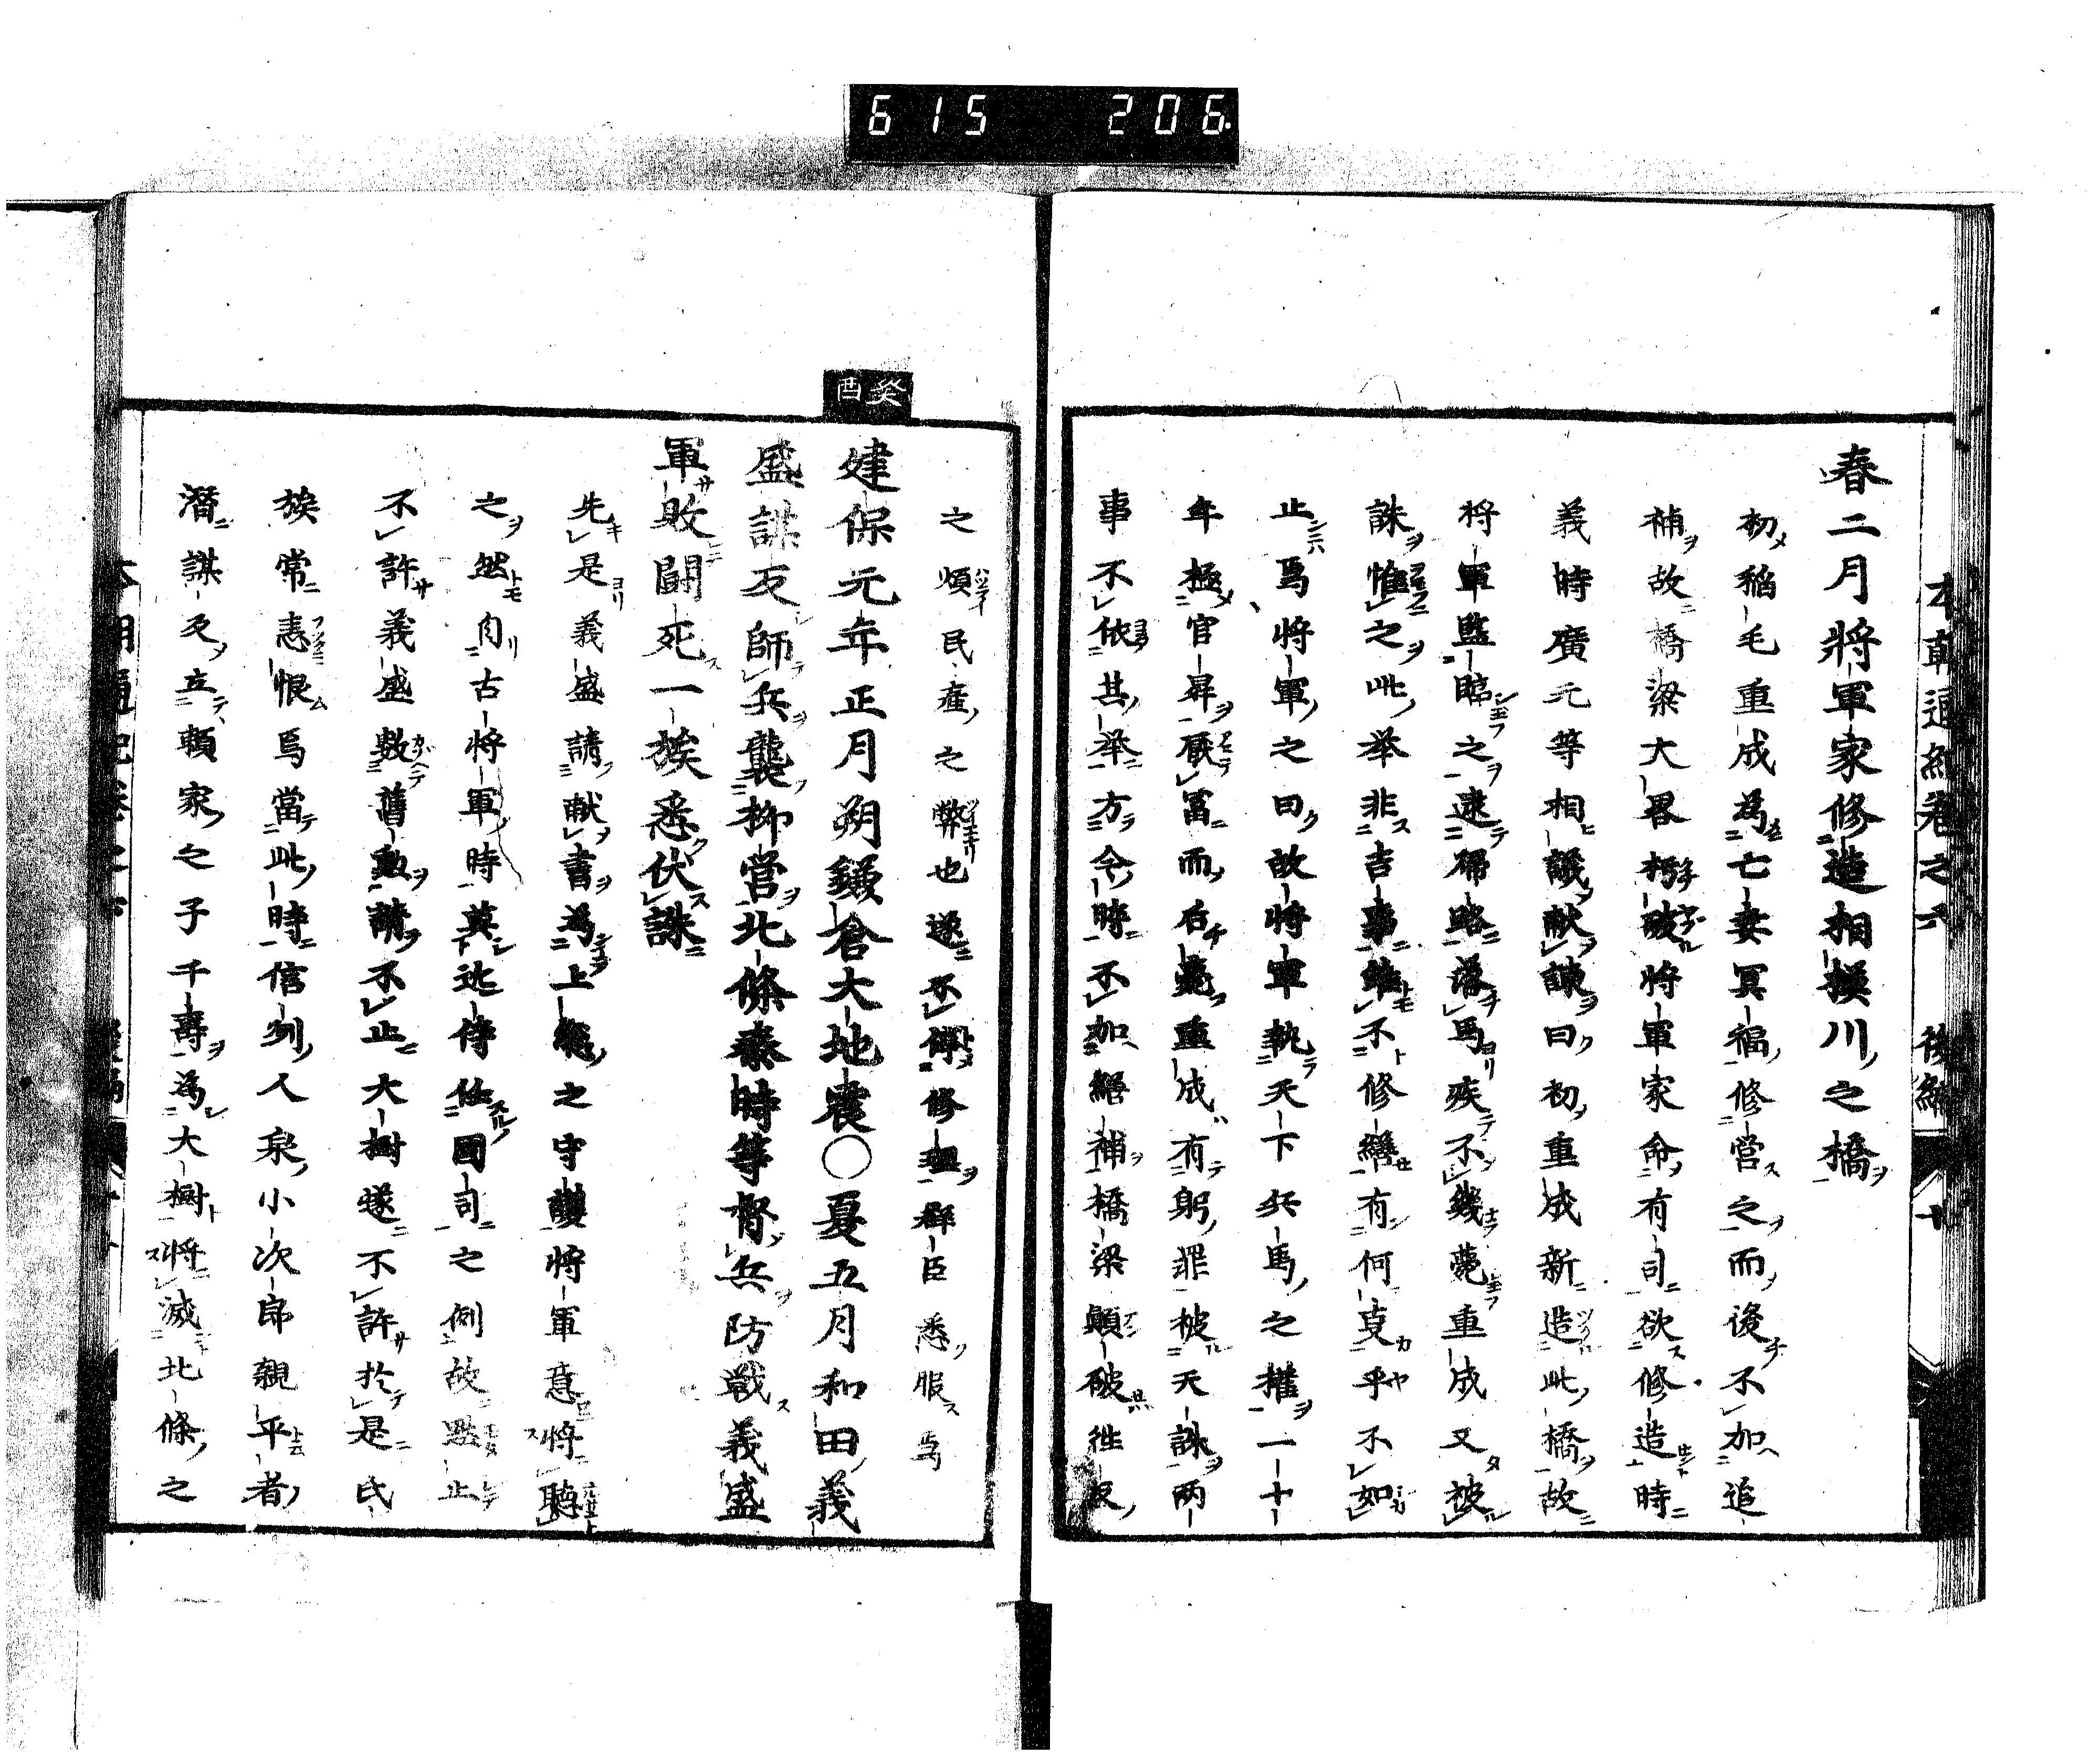 615 206
本朝通紀卷之六 後編 十
春二月將軍家修造相模川之橋
初稲毛重成為亡妻冥福修営之而後不加追
補故橋梁大畧朽破將軍家命有司欲修造時
義時廣元等相議献諌曰初重成新造此橋故
將軍監臨之還帰路落馬疾不幾薨重成又被
誅惟之此挙非吉事縱不修繕有何㕝乎不如
止焉將軍之曰故將軍執天下兵馬之權一十
年極官昇厭冨而后薨重成有躬罪被天誅兩
事不依其举方今時不加繕補橋梁顛破徃反
之煩民産之弊也遂不停修理群臣悉服焉
癸酉
建保元年正月朔鎌倉大地震〇夏五月和田義
盛謀反師兵襲柳営北條泰時等督兵防戰義盛
軍敗闘死一族悉伏誅
先是義盛請献書為上總之守護將軍意將聴
之然自古將軍時莫近侍任國司之例故黙止
不許義盛數舊勲請不止大樹遂不許於是氏
族常恚恨焉當此時信州人泉小次郎親平者
潜謀反立頼家之子千壽為大樹將滅北條之